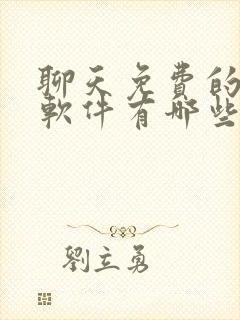 聊天免費的
軟件有哪些
劉立勇